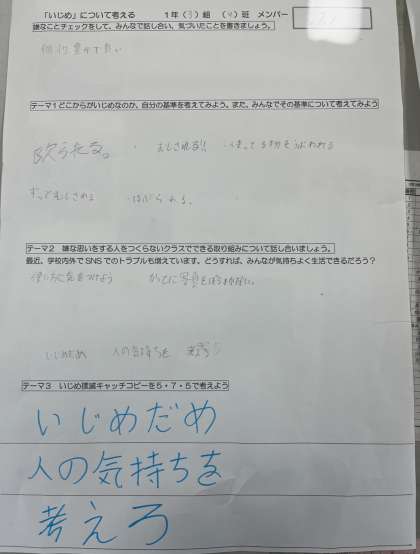 「いじめ」について考える 1年(3)組 (4)班 メンバー
嫌なことチェックをして、みんなで話し合い、気づいたことを書きましょう。
テーマ1どこからがいじめなのか、自分の基準を考えてみよう。また、みんなでその基準について考えてみよう
殴られる。 ・ むしされる!!
ずっとむしされる
テーマ2 嫌な思いをする人をつくらないクラスでできる取り組みについて話し合いましょう。
最近、学校内外でSNSでのトラブルも増えています。どうすれば、みんなが気持ちよく生活できるだろう?
使い方に気をつけよう かってに写真を
いじめだめ 人の気持ちを 考えろ
テーマ3 いじめ撲滅キャッチコピーを5・7・5で考えよう
いじめだめ
人の気持ちを
考えろ